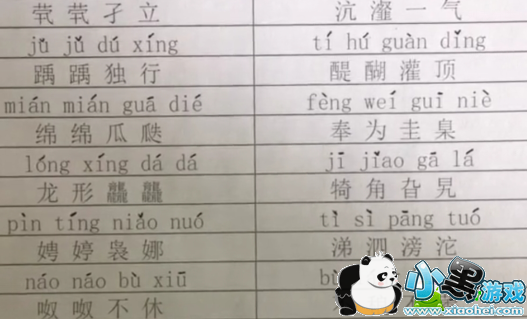 茕茕孑立 沆瀣一气
jǔ jǔ dú xíng tí hú guàn dǐng
踽踽独行 醍醐灌顶
mián mián guā dié fèng weí guī niè
绵绵瓜瓞 奉为圭臬
lóng xíng dá dá jī jiao gā lá
龙形龘龘 犄角旮旯
pìn tíng niǎo nuó tì sì pāng tuó
娉婷袅娜 涕泗滂沱
náo náo bù xiū
呶呶不休
小黑游戏
www.xiaohei.com